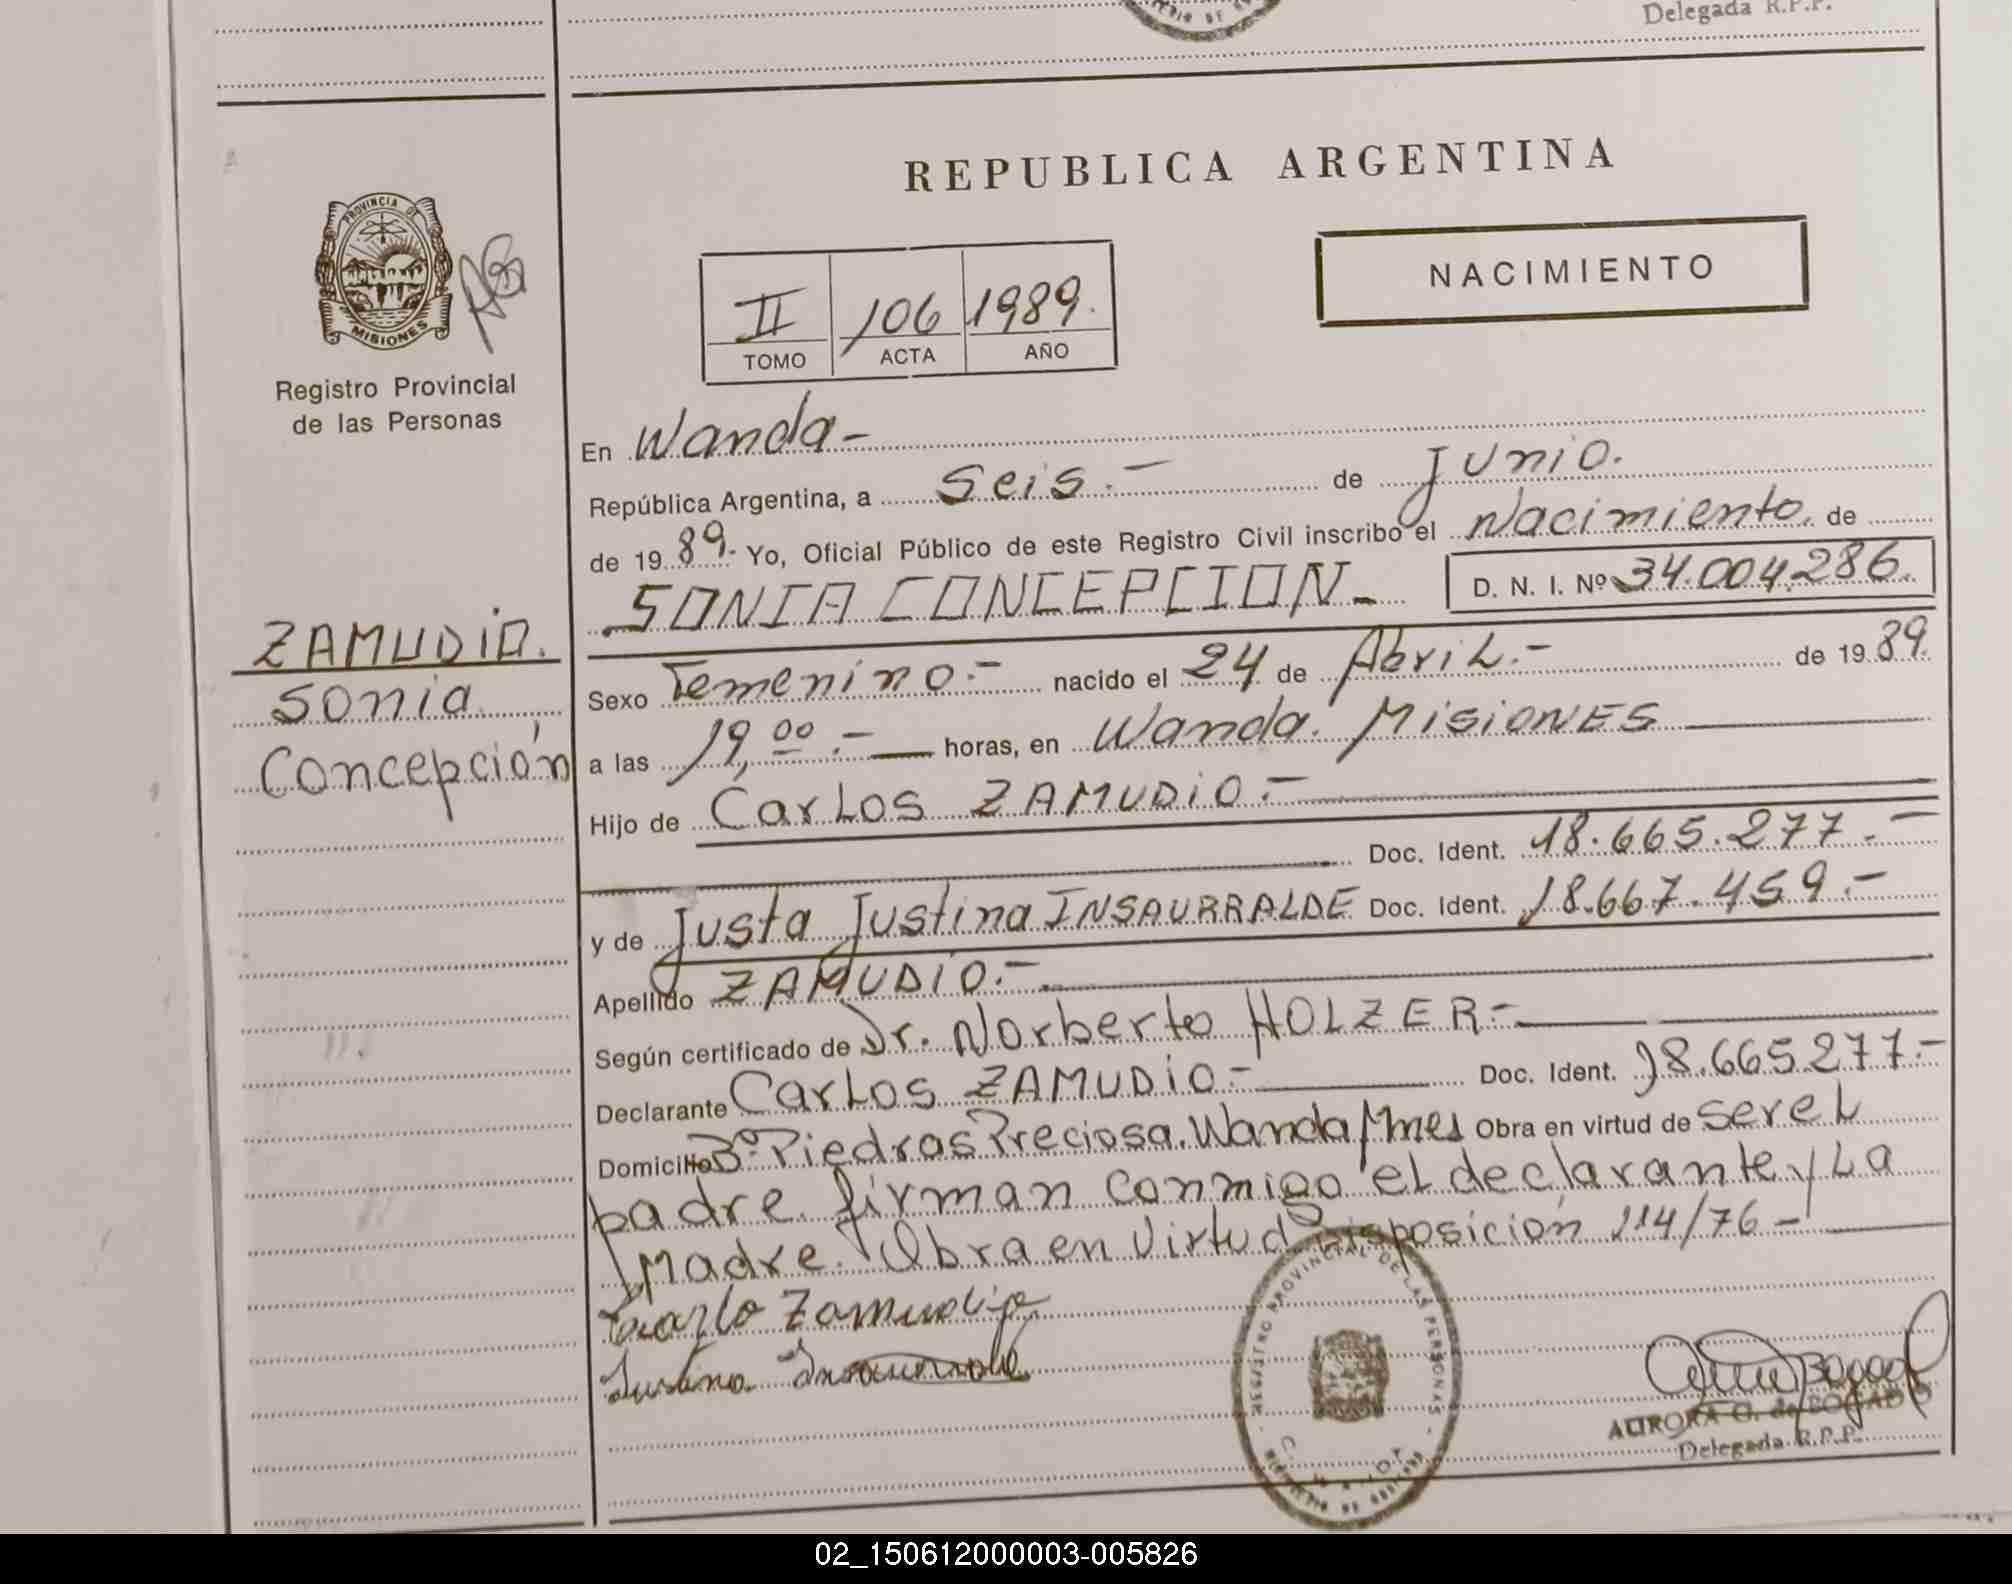 Delegada R.P.P.
PROVINCIA DE
MISIONES
Registro Provincial
de las Personas
REPUBLICA ARGENTINA
NACIMIENTO
II 106 1989.
TOMO ACTA AÑO
En Wanda-
República Argentina, a Seis.- de Junio.
de 19 89.- Yo, Oficial Público de este Registro Civil inscribo el Nacimiento. de
SONIA CONCEPCION.- D. N. I. Nº 34.004.286.
ZAMUDIO.
Sonia
Concepción
Sexo Femenino.- nacido el 24 de Abril.- de 19 89.
a las 19,00.- horas, en Wanda. Misiones
Hijo de Carlos ZAMUDIO.-
Doc. Ident. 18.665.277.-
y de Justa Justina INSAURRALDE Doc. Ident. 18.667.459.-
Apellido ZAMUDIO.-
Según certificado de Dr. Norberto HOLZER-
Declarante Carlos ZAMUDIO- Doc. Ident. 18.665.277.-
Domicilio Bº Piedras Preciosa. Wanda Mnes Obra en virtud de ser el
padre. firman conmigo el declarante y La
Madre. Obra en Virtud Disposición 114/76-
Zamudio
REGISTRO PROVINCIAL DE LAS PERSONAS
AURORA G. de BOGADO
Delegada R.P.P.
02_150612000003-005826